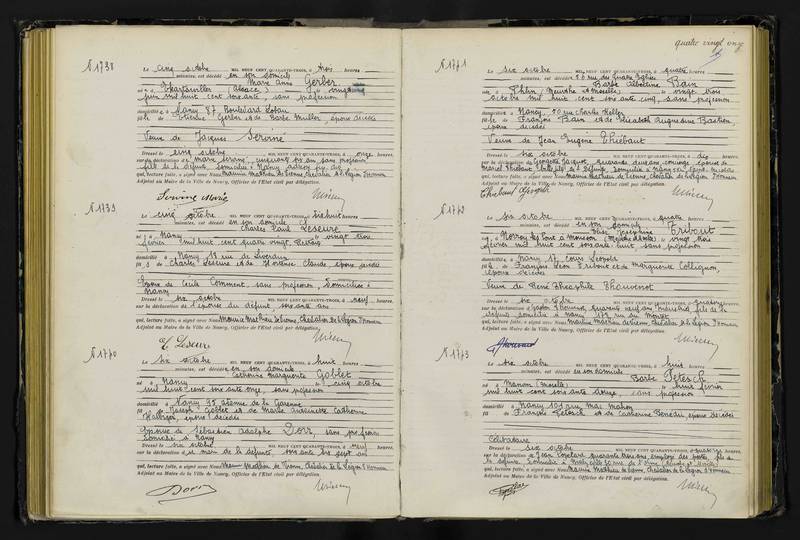 N°1738
Le cinq octobre MIL NEUF CENT QUARANTE-TROIS, à trois heures
minutes, est décédé en son domicile
Marie Anne Gerber
né à Hartzviller (Alsace) vingt
juin mil huit cent soixante, sans profession
domicilié à Nancy 87 Boulevard Lobau
fille de Etienne Gerber et de Barbe Muller, époux décédés
Veuve de Jacques Serviné
Dressé le cinq octobre MIL NEUF CENT QUARANTE-TROIS, à onze heures,
sur la déclaration de Marie Serviné, cinquante six ans, sans profession
fille de la défunte, domiciliée à Nancy
qui, lecture faite, a signé avec Nous Maurice Mathieu de Vienne, Chevalier de la Légion d'Honneur
Adjoint au Maire de la Ville de Nancy, Officier de l'Etat civil par délégation.
Serviné Marie
N°1739
Le cinq octobre MIL NEUF CENT QUARANTE-TROIS, à dix huit heures
minutes, est décédé en son domicile
Charles Paul Leseure
né à Nancy vingt trois
février mil huit cent quatre vingt
domicilié à Nancy 11 rue de Liverdun
fils de Charles Leseure et de Florence Claude, époux décédés
Epoux de Cécile Comment, sans profession, domiciliée à
Nancy
Dressé le six octobre MIL NEUF CENT QUARANTE-TROIS, à neuf heures,
sur la déclaration de l'épouse du défunt, soixante ans
qui, lecture faite, a signé avec Nous Maurice Mathieu de Vienne, Chevalier de la Légion d'Honneur
Adjoint au Maire de la Ville de Nancy, Officier de l'Etat civil par délégation.
C. Leseure
N°1740
Le six octobre MIL NEUF CENT QUARANTE-TROIS, à huit heures
minutes, est décédé en son domicile
Catherine Marguerite Goblet
né à Nancy cinq octobre
mil huit cent soixante onze, sans profession
domicilié à Nancy 95 avenue de la Garenne
fille de Joseph Goblet et de Marie Antoinette Catherine
époux décédés
Epouse de Sébastien Adolphe Dorr, sans profession
domicilié à Nancy
Dressé le six octobre MIL NEUF CENT QUARANTE-TROIS, à neuf heures,
sur la déclaration du mari de la défunte, soixante dix sept ans
qui, lecture faite, a signé avec Nous Maurice Mathieu de Vienne, Chevalier de la Légion d'Honneur
Adjoint au Maire de la Ville de Nancy, Officier de l'Etat civil par délégation.
Dorr
quatre vingt onze
N°1741
Le six octobre MIL NEUF CENT QUARANTE-TROIS, à quatre heures
minutes, est décédé 80 rue des Quatre Eglises
Barbe Albertine Bain
né à Phlin (Meurthe et Moselle) vingt trois
octobre mil huit cent soixante cinq, sans profession
domicilié à Nancy, 20 rue Charles Keller
fille de François Bain et de Elisabeth Augustine Bastien
époux décédés
Veuve de Jean Eugène Thiébaut
Dressé le six octobre MIL NEUF CENT QUARANTE-TROIS, à dix heures,
sur la déclaration de Georgette Jacquot, quarante deux ans, concierge, épouse de
Marcel Thiébaut, domiciliée à Nancy
qui, lecture faite, a signé avec Nous Maurice Mathieu de Vienne, Chevalier de la Légion d'Honneur
Adjoint au Maire de la Ville de Nancy, Officier de l'Etat civil par délégation.
Thiebaut Georgette
N°1742
Le six octobre MIL NEUF CENT QUARANTE-TROIS, à quatre heures
minutes, est décédé en son domicile
Elise Joséphine Tribout
né à (Meurthe et Moselle) vingt trois
février mil huit cent soixante huit, sans profession
domicilié à Nancy 17 cours Léopold
fille de François Léon Tribout et de Marguerite Collignon,
époux décédés
Veuve de René Théophile Thouvenot
Dressé le six octobre MIL NEUF CENT QUARANTE-TROIS, à quatorze heures,
sur la déclaration de quarante neuf ans, industriel, fils de la
défunte, domicilié à Nancy
qui, lecture faite, a signé avec Nous Maurice Mathieu de Vienne, Chevalier de la Légion d'Honneur
Adjoint au Maire de la Ville de Nancy, Officier de l'Etat civil par délégation.
N°1743
Le six octobre MIL NEUF CENT QUARANTE-TROIS, à huit heures
minutes, est décédé en son domicile
Barbe Petesch
né à Manom (Moselle) huit février
mil huit cent soixante douze, sans profession
domicilié à Nancy 101 rue Mac Mahon
fille de François Petesch et de Catherine époux décédés
Célibataire
Dressé le six octobre MIL NEUF CENT QUARANTE-TROIS, à quatorze heures,
sur la déclaration de Jean quarante trois ans, employé des postes,
qui, lecture faite, a signé avec Nous Maurice Mathieu de Vienne, Chevalier de la Légion d'Honneur
Adjoint au Maire de la Ville de Nancy, Officier de l'Etat civil par délégation.